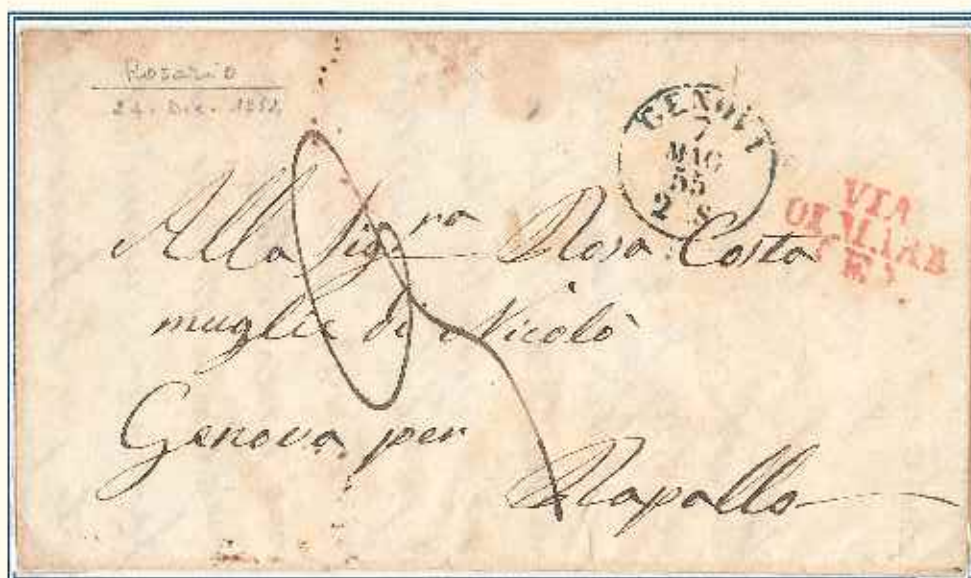 Rosario
24. Dic.
GENOVA
7
MAG
55
2 S
VIA
DI MARE
Alla Sig.ra Rosa Costa
muglie di Nicolò
Genova per
Rapallo